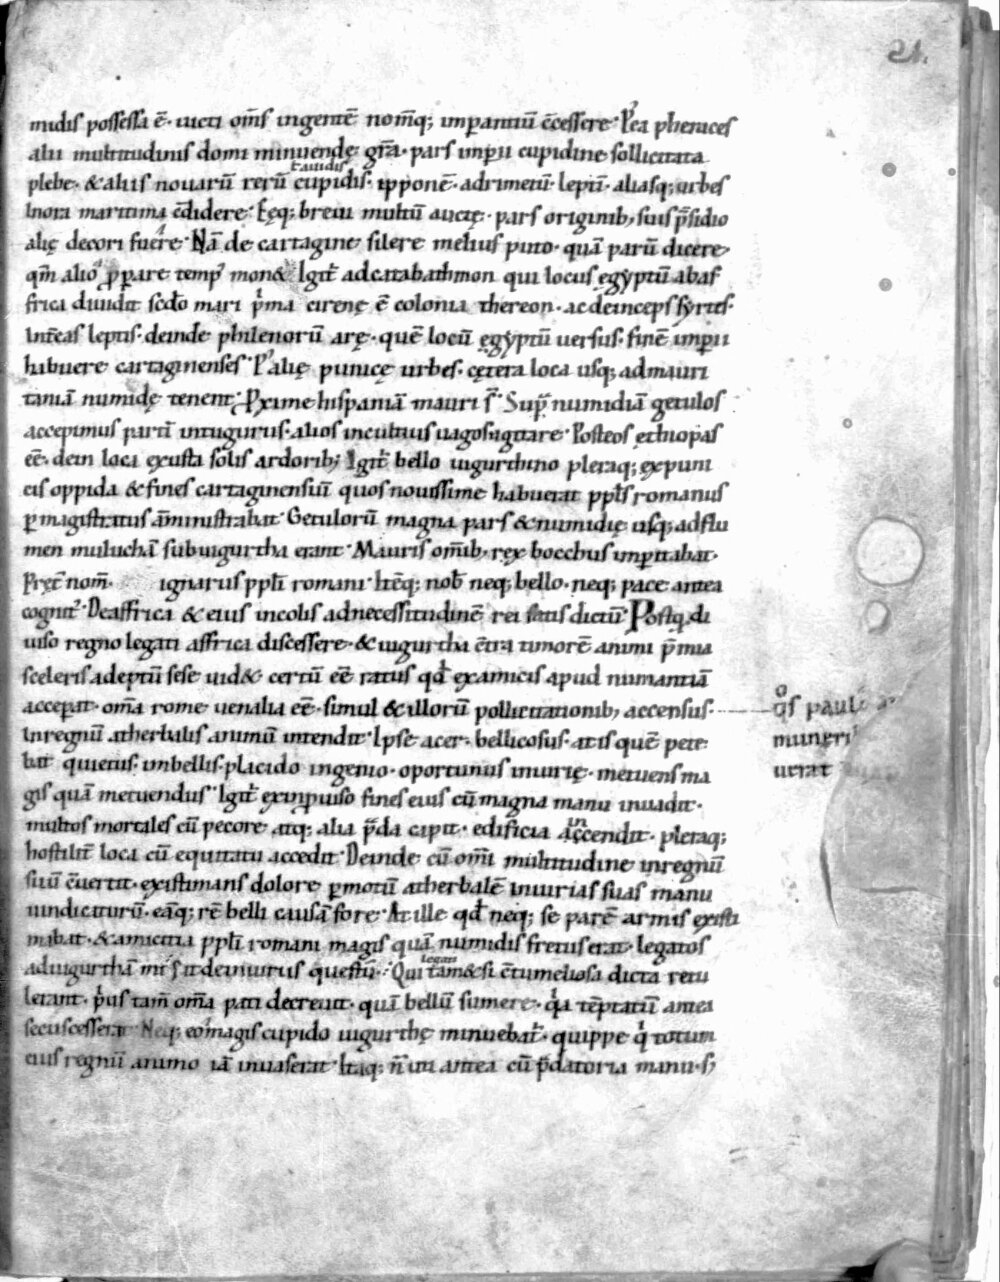 21.
midis possessa ē· uicti om̄s in gentē nom̄q; imperantiū c̄cessere· Postea phenices
alii multitudinis domi minuendę gr̄a· pars imperii cupidine sollicitata
auidis
plebe· & aliis nouarū rerū cupidis· ipponē· adrimetū· leptī· aliasq; urbes
inora maritima c̄didere· Eęq; breui multū auctę· pars originib; suis p̄sidio
alię decori fuere· Nā de cartagine silere melius puto· quā parū dicere
qm̄ alio p̄perare temp' mon& Igit̄ adcatabathmon qui locus ęgyptū abaf
frica diuidit scd̄o mari p̄ma cirenę ē colonia thereon· ac deinceps syrtes·
Int̄eas leptis· deinde philenorū arę· quē locū ęgyptū uersus· finē imperii
habuere cartaginenses· P' alię punicę urbes· cętera loca usq; admauri
taniā numidę tenent· Proxime hispaniā mauri s̄· Sup̄ numidiā getulos
accepimus partī intugurus· alios incultius uagos agitare· Posteos ęthiopas
eē· dein loca exusta solis ardorib; Igit̄ bello iugurthino pleraq; expuni
cis oppida & fines cartaginensiū quos nouissime habuerat ppl̄s romanus
p magistratus am̄inistrabat· Getulorū magna pars & numidię usq; adflu
men muluchā subiugurtha erant· Mauris om̄ib· rex bocchus imp̄itabat·
Pręt̄ nom̄· ignarus ppl̄i romani· Itēq; nob̄ neq; bello· neq; pace antea
cognit'· Deaffrica & eius incolis adnecessitudinē rei satis dictū· Postq· di
uiso regno legati affrica discessere· & iugurtha c̄tra timorē animi p̄mia
sceleris adeptū sese uid& certū eē ratus qd̄ examicis apud numantiā
acceperat· om̄a rome uenalia eē· simul & illorū pollicitationib; accensus·
qo̊s pauló
Inregnū atherbalis animū intendit· Ipse acer· bellicosus· at is quē pete
muneri
bat quietus· imbellis· placido ingenio· oportunus iniurię· metuens ma
uerat
gis quā metuendus· Igit̄ eximprouiso fines eius cū magna manu inuadit·
multos mortales cū pecore atq; alia p̄da capit· edificia accendit· pleraq;
in
hostilit̄ loca cū equitatu accedit· Deinde cū om̄i multitudine inregnū
suū c̄uertit· existimans dolore p̄motū atherbalē iniurias suas manu
uindicaturū· eāq; rē belli causā fore· At ille qd̄ neq; se parē armis existi
mabat· & amicitia ppl̄i romani magis quā numidis fretus erat· legatos
adiugurthā misit deiniuriis questū· Qui tam&si c̄tumeliosa dicta retu
legati
lerant· p̄us tam̄ om̄a pati decreuit· quā bellū sumere· qa tēptatū antea
secus cesserat· Neq; eo magis cupido iugurthę minuebat̄· quippe q̄ totum
eius regnū animo iā inuaserat· Itaq; n̄ uti antea cū p̄datoria manu· s;